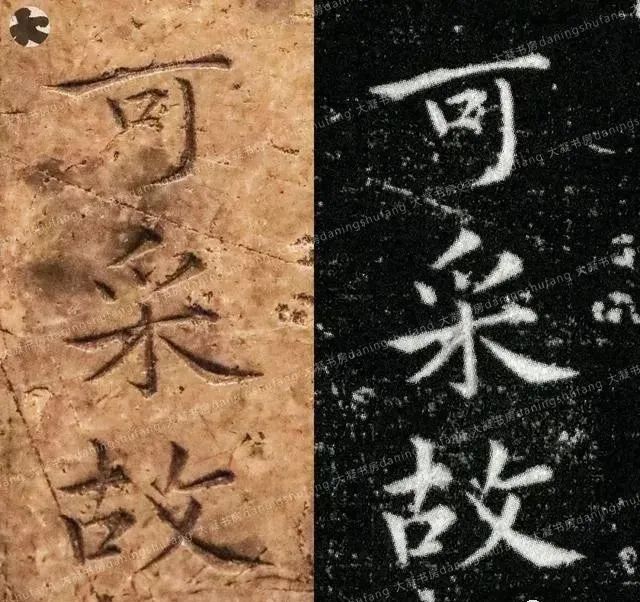 可采故
可采故
大凝书房daningshufang